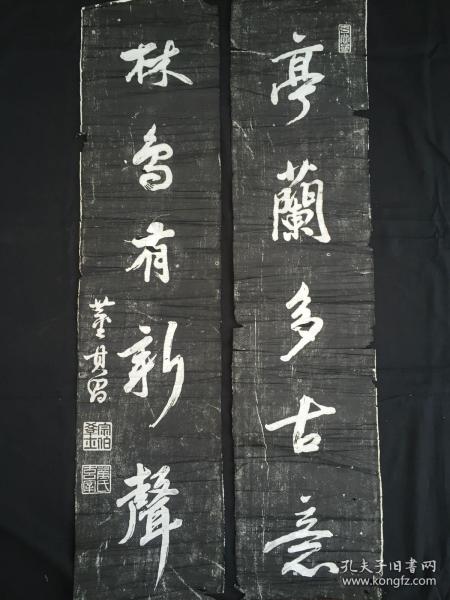 亭蘭多古意
林鳥有新聲
董其昌
孔夫子旧书网
www.kongfz.com